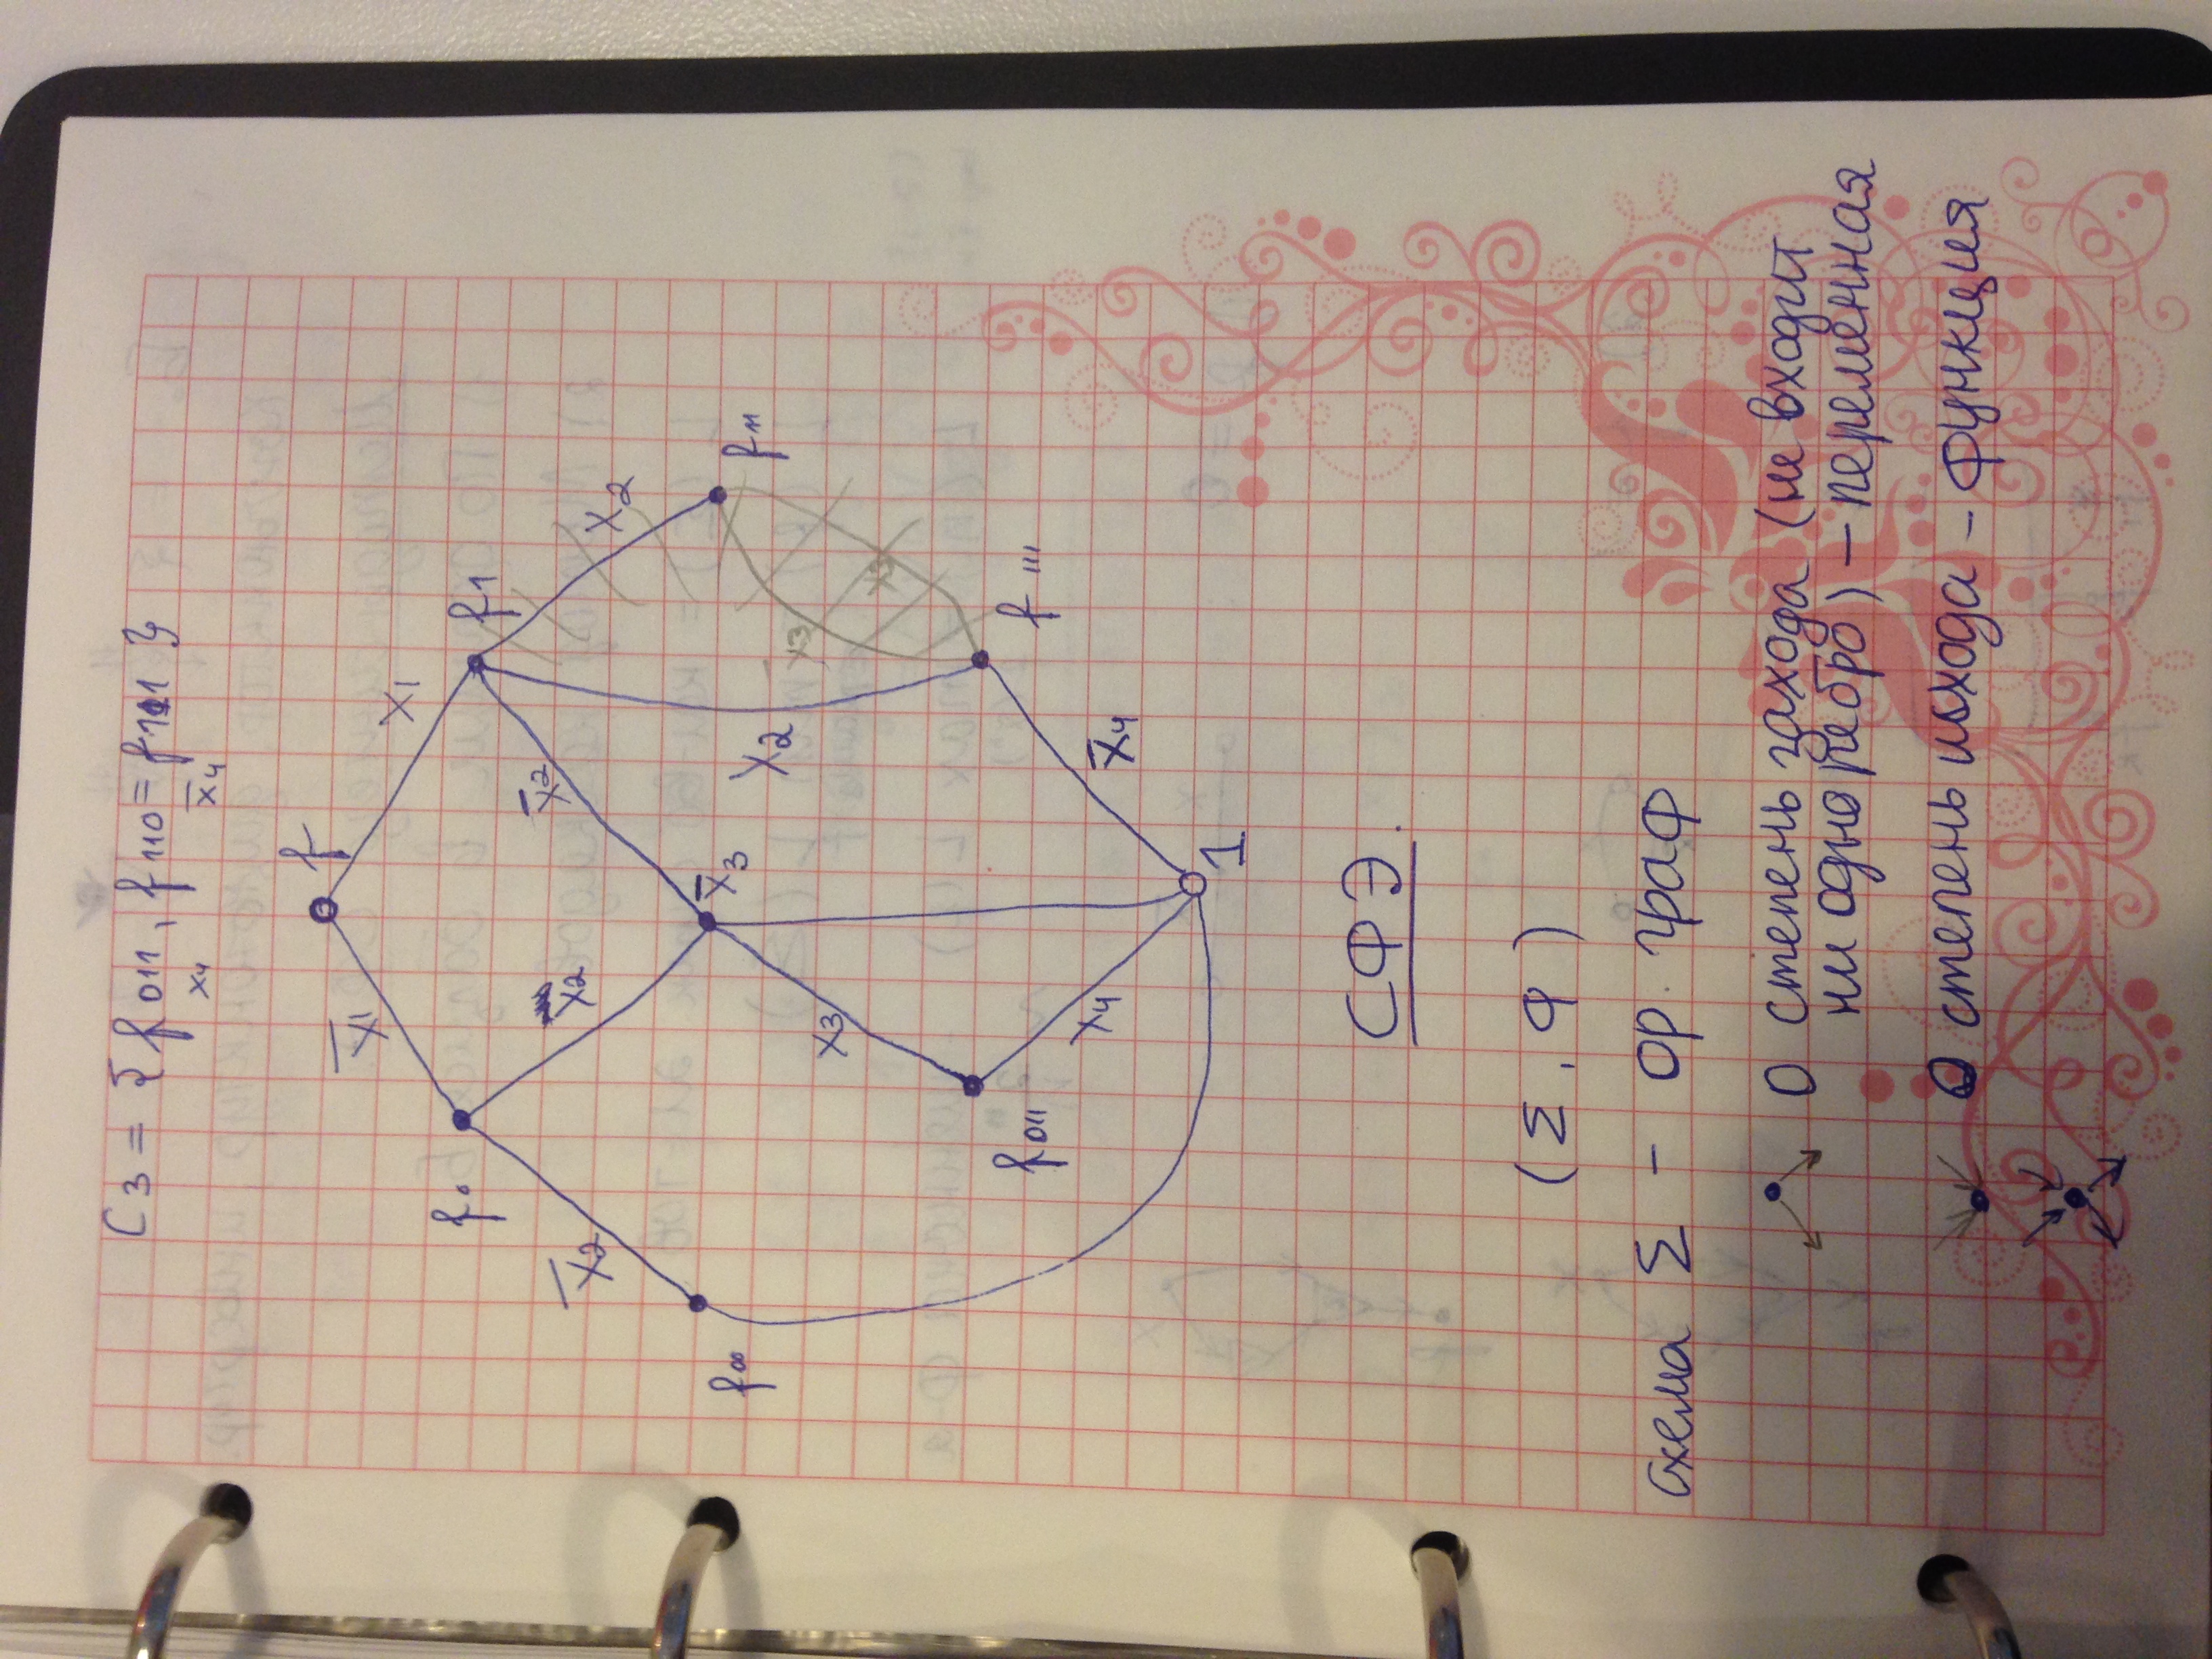 C3 = { f011, f110 = f111 }
x4 x̄4
f
x̄1 x1
f0 f1
x̄2 x2 x̄2 x2
f00 x̄3 f11
x2
x3 x3 x̄3
f011 f111
x4 x̄4
1
СФЭ.
(Σ, φ)
схема Σ - ор. граф
0 степень захода (не входит
ни одно ребро) - переменная
0 степень исхода - функция